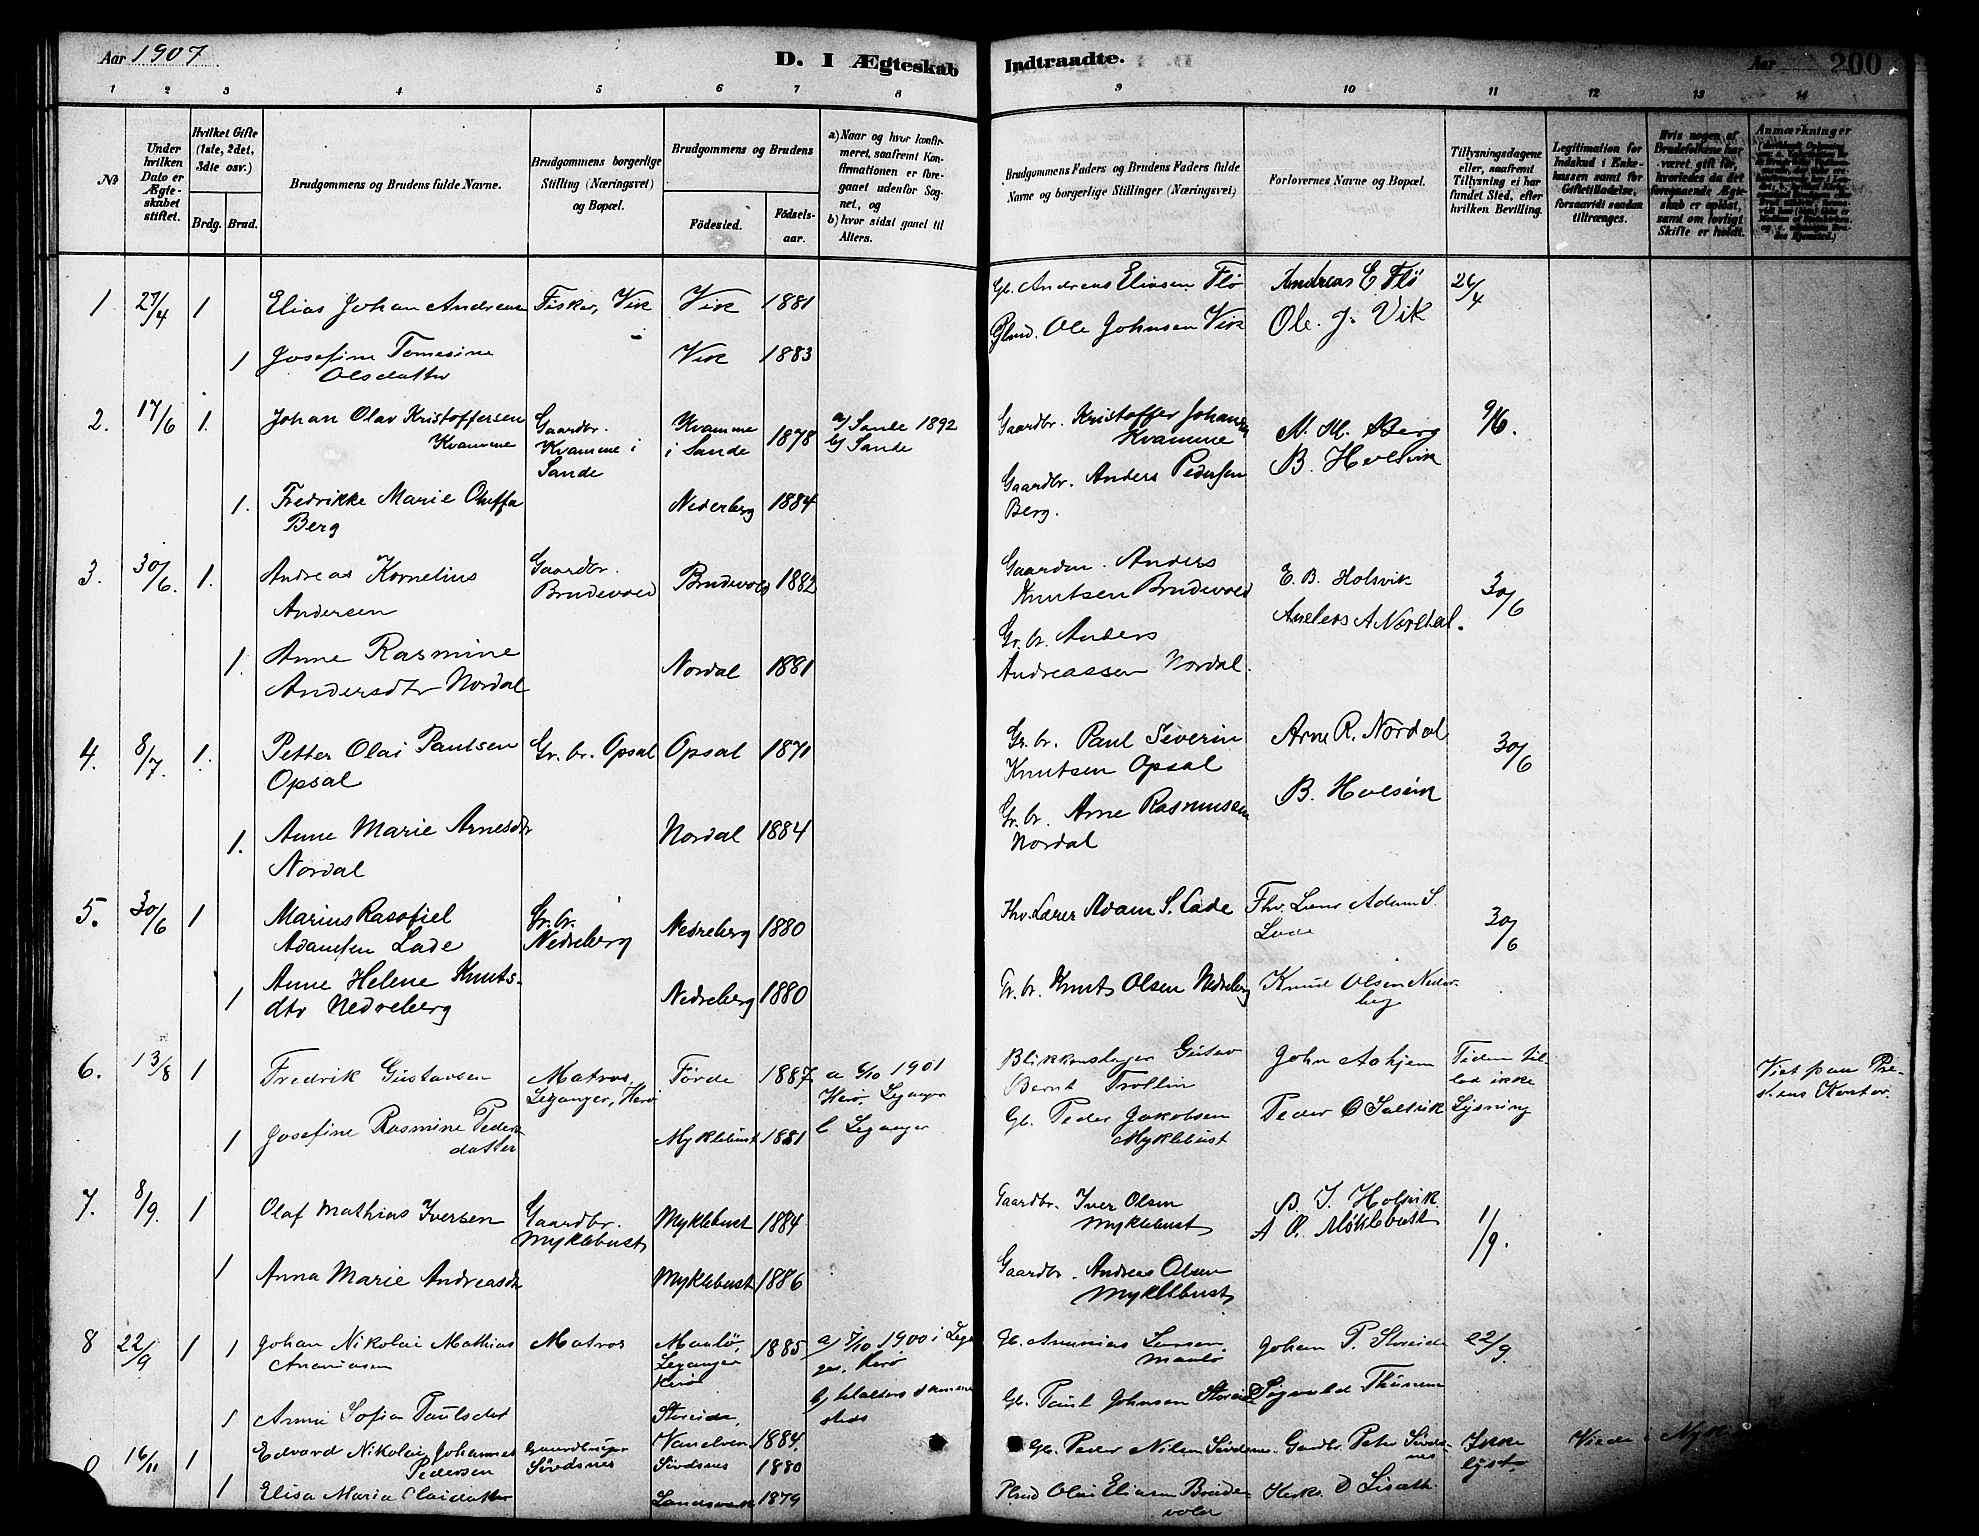 Aar 1907
D. I Ægteskab Indtraadte.
Aar 200
1 2 3 4 5 6 7 8 9 10 11 12 13 14
№
Under hvilken Dato er Ægteskabet stiftet.
Hvilket Gifte (1ste, 2det, 3die osv.)
Brdg. Brud.
Brudgommens og Brudens fulde Navne.
Brudgommens borgerlige Stilling (Næringsvei) og Bopæl.
Brudgommens og Brudens
Fødested.
Fødselsaar.
a) Naar og hvor konfirmeret, saafremt Konfirmationen er foregaaet udenfor Sognet, og
b) hvor sidst gaaet til Alters.
Brudgommens Faders og Brudens Faders fulde Navne og borgerlige Stillinger (Næringsvei)
Forlovernes Navne og Bopæl.
Tillysningsdagene eller, saafremt Tillysning ei har fundet Sted, efter hvilken Bevilling.
Legitimation for Indskud i Enkekassen samt for Giftetilladelse, forsaavidt saadan tiltrænges.
Hvis nogen af Brudefolkene har været gift før, hvorledes da det foregaaende Ægteskab er opløst, samt om lovligt Skifte er holdt.
Anmærkninger
1 27/4 1 Elias Johan Andreas Fisker, Vik Vik 1881 Gb. Andreas Eliasen Flø Andreas E Flø 26/4
Ole Johnsen Vik Ole. J. Vik
1 Josefine Tomesine Vik 1883
Olsdatter
2. 17/6 1. Johan Olav Kristoffersen Gaardbr. Kvamme 1878 a/ Sande 1892 Gaardbr. Kristoffer Johansen N. M. Berg 9/6.
Kvamme Kvamme i i Sande b/ Sande Kvamme B. Holsvik
Sande Gaardbr. Anders Pedersen
1. Fredrikke Marie Oluffa Nederberg 1884 Berg.
Berg
3. 30/6. 1. Andreas Kornelius Gaardbr. Brudevold 1882 Gaardm. Anders E. B. Holsvik 30/6
Andersen Brudevold Knutsen Brudevold
Gr. br. Anders Anders A Nordal.
1. Anne Rasmine Nordal 1881 Andreassen Nordal.
Andersdtr Nordal
4. 8/7. 1. Petter Olai Paulsen Gr. br. Opsal Opsal 1871 Gr. br. Paul Severin Arne R. Nordal 30/6
Opsal Knutsen Opsal
Gr. br. Arne Rasmussen B. Holsvik
1. Anne Marie Arnesdtr Nordal 1884 Nordal
Nordal
5. 30/6 1 Marius Rasofiel Gr. br. Nedreberg 1880 Fhv. Lærer Adam S. Lade Fhv. Lærer Adam S. 30/6
Adamsen Lade Nedreberg Lade
1 Anne Helene Knuts- Nedreberg 1880 Gr. br. Knut Olsen Nedreberg Knud Olsen Neder-
dtr Nedreberg berg
6. 13/8 1 Fredrik Gustavsen Matros Førde 1887 a 6/10 1901 Blikkenslager Gustav John Aahjem Tiden til- Viet paa Pre-
Leganger, Herø Herø, Leganger Bernt Trollin lod ikke stens Kontor.
1 Josefine Rasmine Peders Myklebust 1881 b Leganger Gb. Peder Jakobsen Peder O Saltvik Lysning
datter Myklebust
7. 8/9. 1 Olaf Mathias Iversen Gaardbr. Myklebust 1884 Gaardbr. Iver Olsen B. J. Holsvik 1/9.
Myklebust Myklebust A O. Møklebust
1 Anna Marie Andreasdtr Myklebust 1886 Gaardbr. Andreas Olsen
Myklebust
8 22/9 1 1 Johan Nikolai Mathias Matros 1885 1900 i Legan Ananias Johan P. Storeide 22/9.
Ananiasen Leganger ger, Herø
Herø
1 Anne Sofia Paulsdtr Storeide, steds Gb. Paul Johnsen Storeide Sigvald Thunem
16/11 1 Edvard Nikolai Johannes Gaardbruger Vanelven 1884. Gb. Peder Nilsen Gardbr. Peter Ikke Viede i
Pedersen Sørdsnes Sørdsnes 1880 lyst.
1 Elisa Maria Olaidatter 1879 Olai Eliasen Brude-
vold